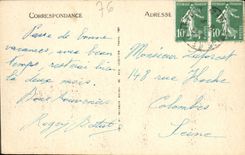 76
CORRESPONDANCE
ADRESSE
10
10
Passe de bonne
vacances, avec beau
temps, resterai ici
la deux mois.
Bons Souvenirs
Roger
Monsieur Laforest
148 rue Hoche
Colombes
Seine